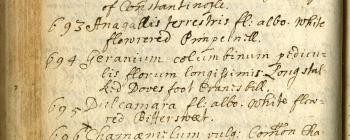 of Constantinople.
693 Anagallis terrestris fl: albo. White
flowrered Pimpernell.
694 Geranium columbinum pedicu-
lis florum longissimis. Long stal-
ked Doves foot Cranesbill.
695 Dulcamara fl: albo. White flow-
red Bittersweet.
696 Chamæmelum vulg: Comon Cha-